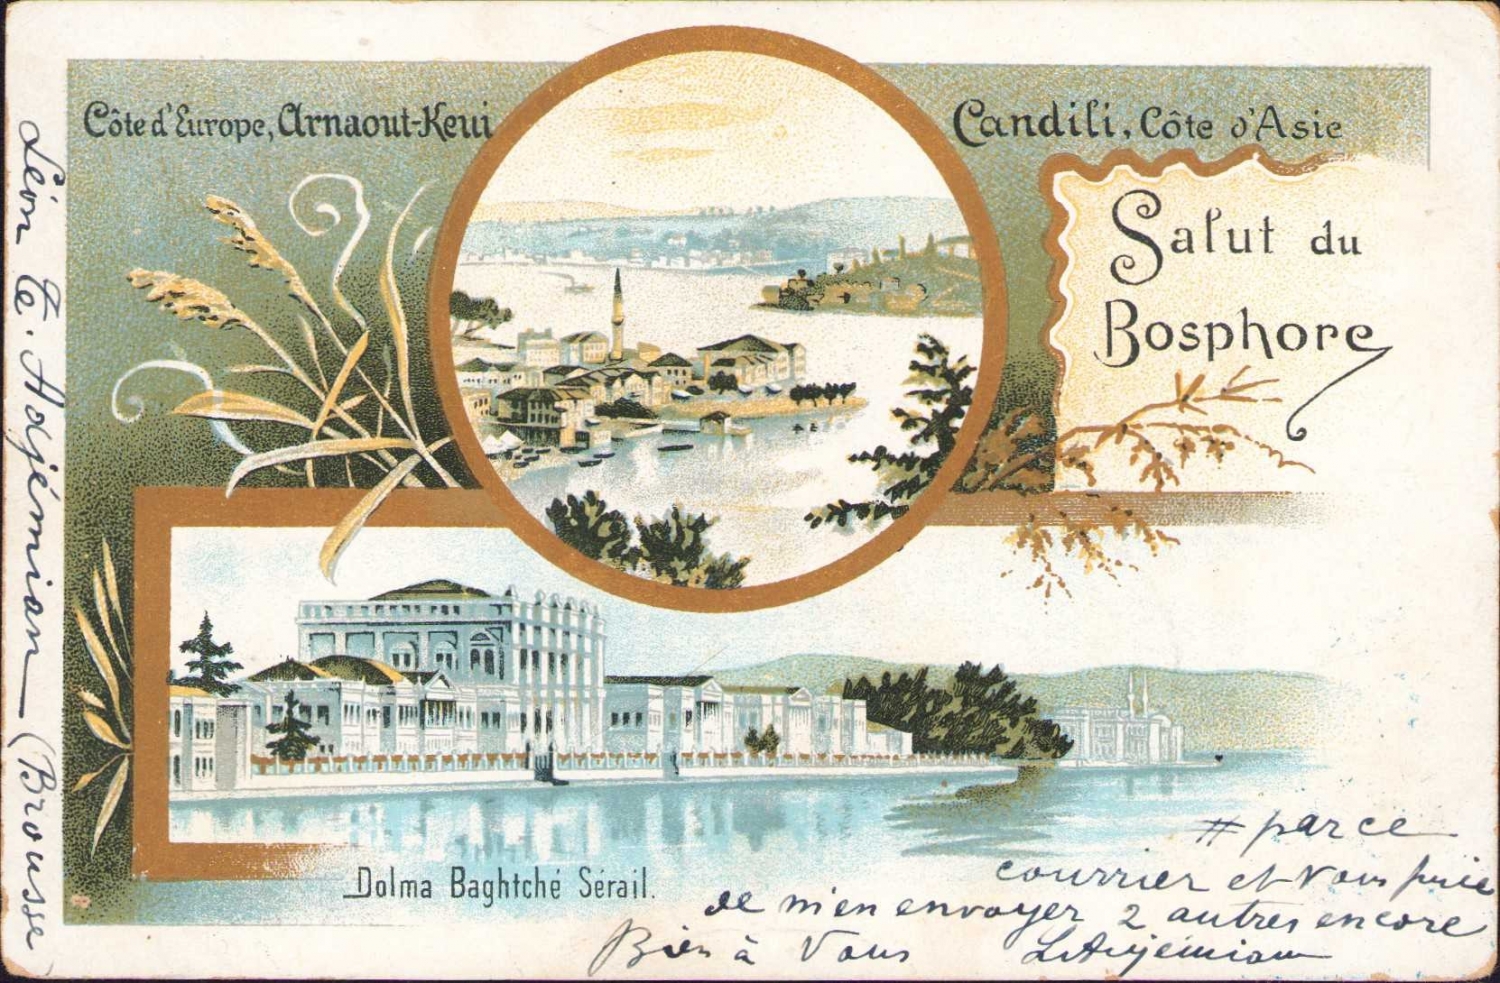 Côte d'Europe, Arnaout-Keui
Candili, Côte d'Asie
Salut du
Bosphore
Dolma Baghtché Sérail.
# parce
courrier et vous prie
de m'en envoyer 2 autres encore
Bien à vous LAdjémian
Léon Té. Adjémian (Brousse